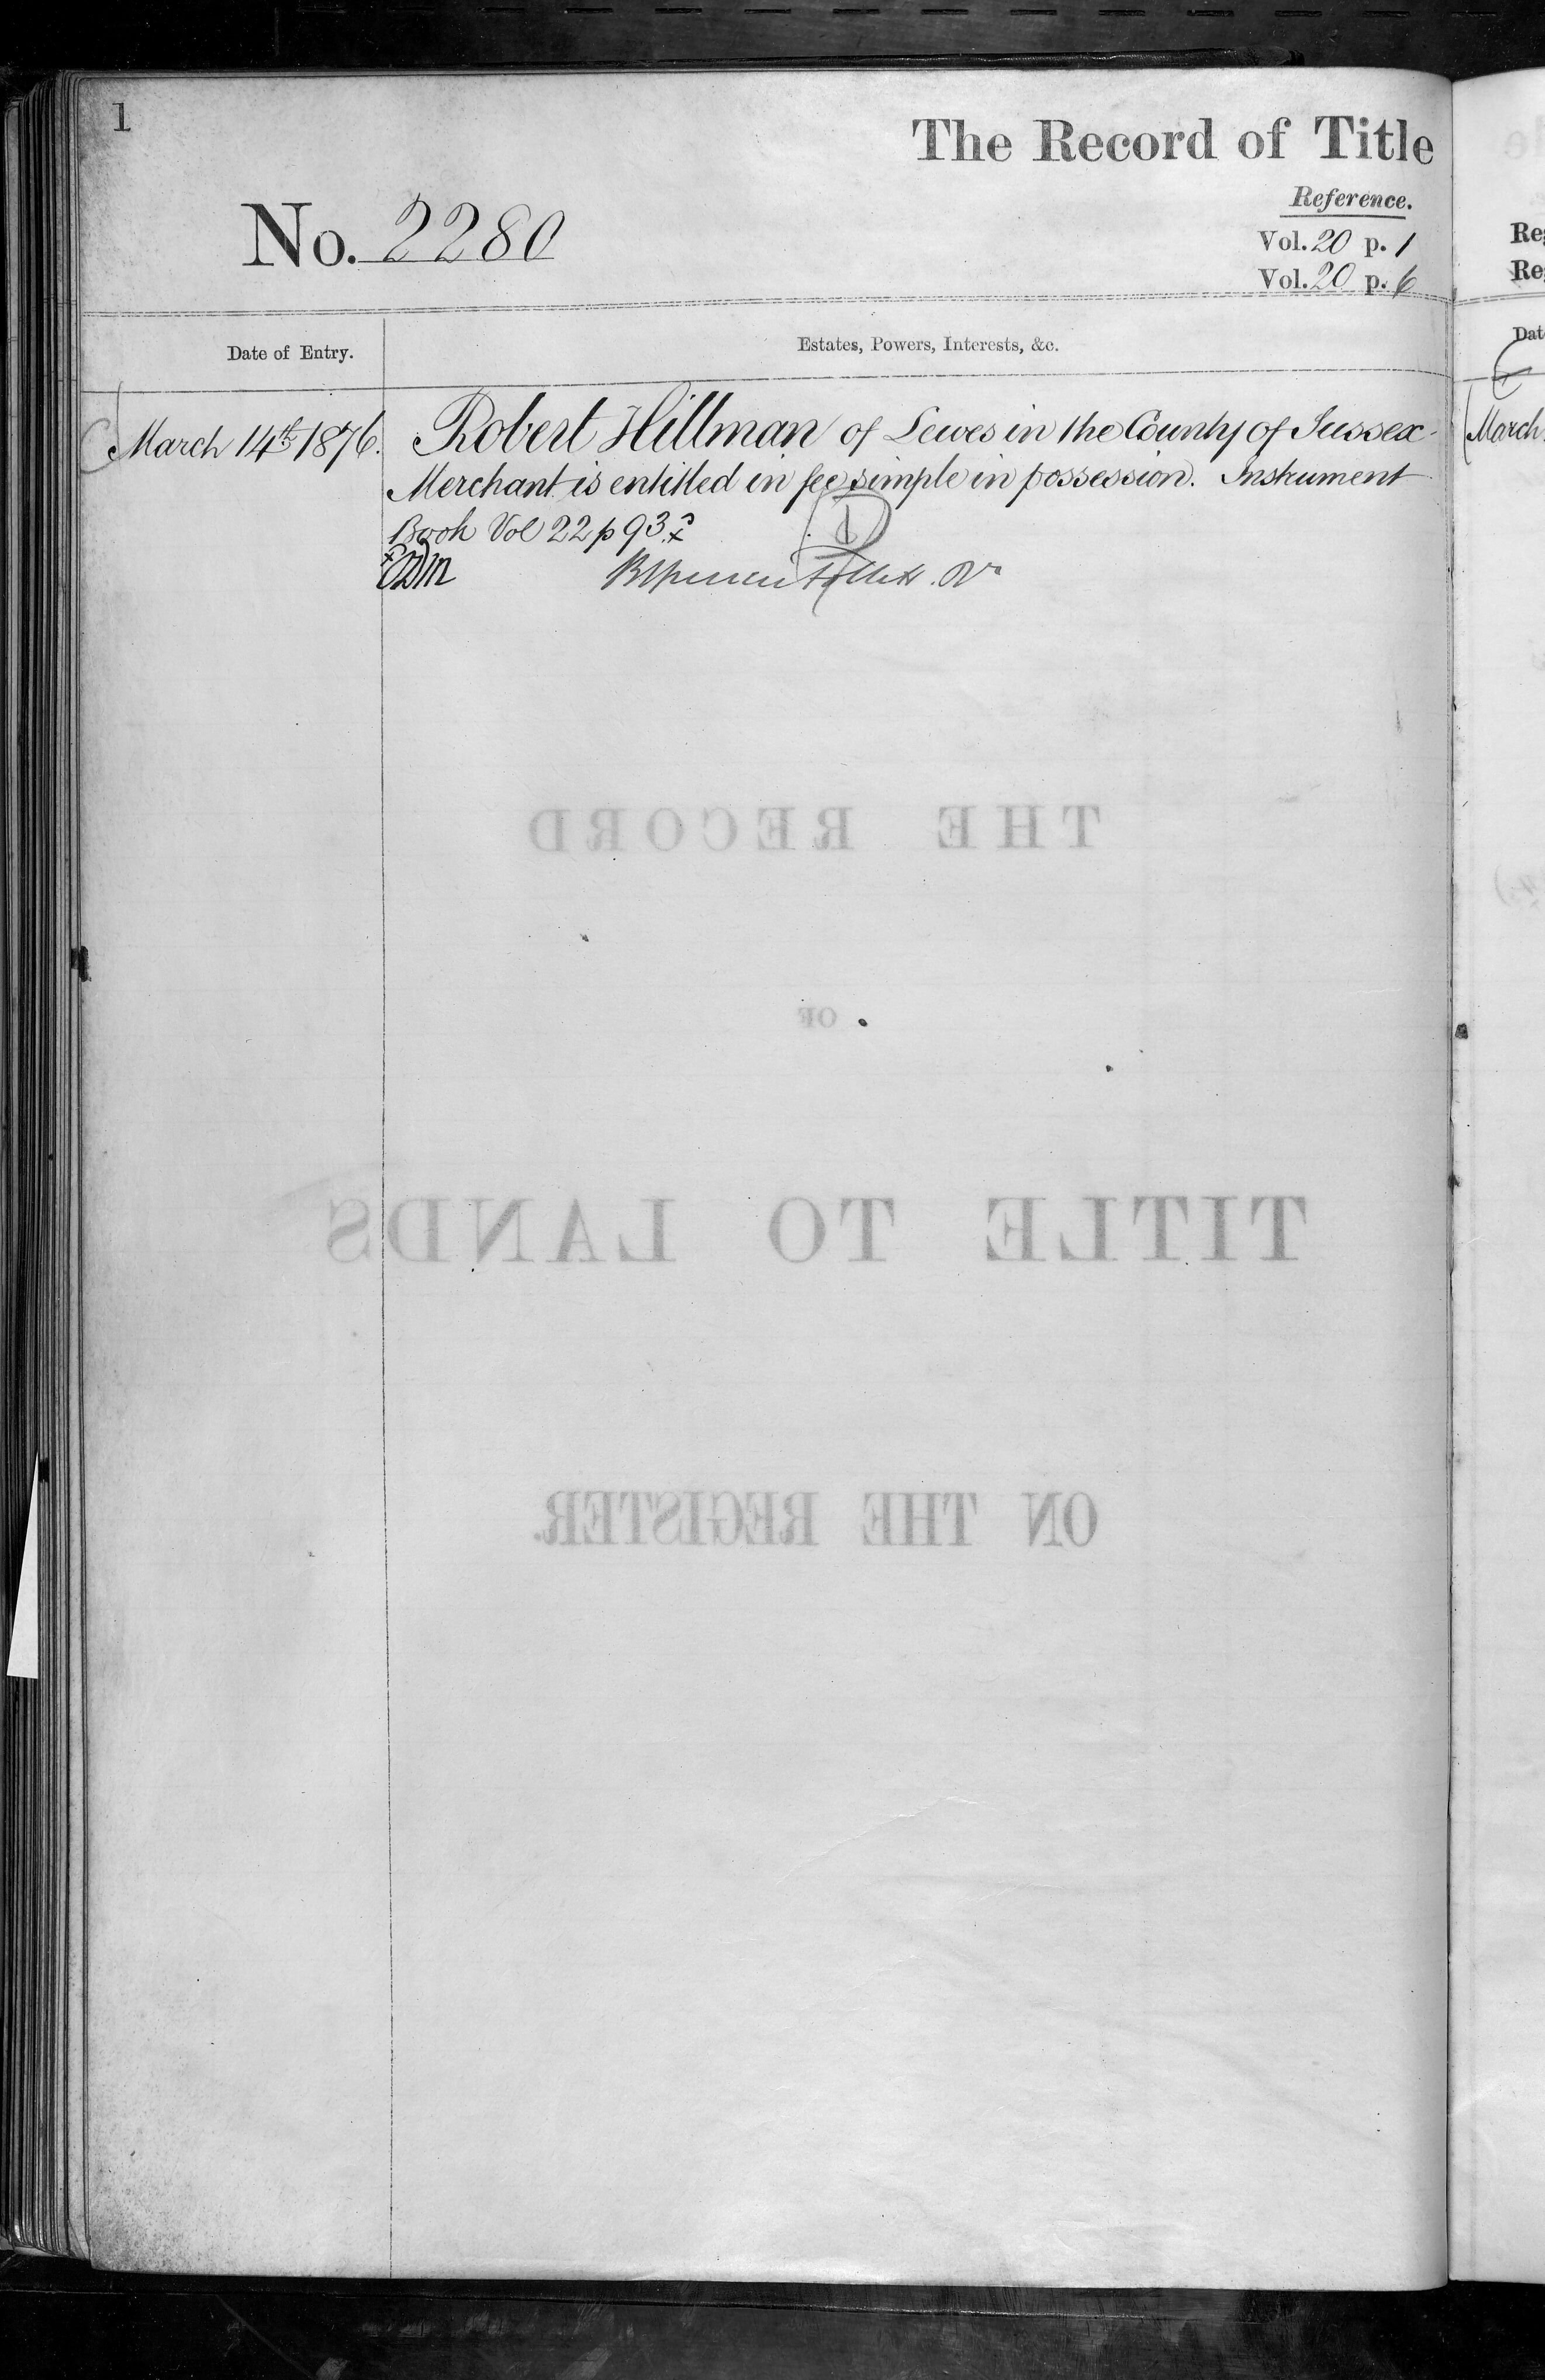 1
The Record of Title
Reference.
No. 2280
Vol. 20 p. 1
Vol. 20 p. 6
Date of Entry.
Estates, Powers, Interests, &c.
March 14th 1876.
Robert Hillman of Lewes in the County of Sussex
Merchant is entitled in fee simple in possession. Instrument
Book Vol 22 p 93.
THE RECORD
OF
TITLE TO LANDS
ON THE REGISTER.
Re
Re
Dat
March